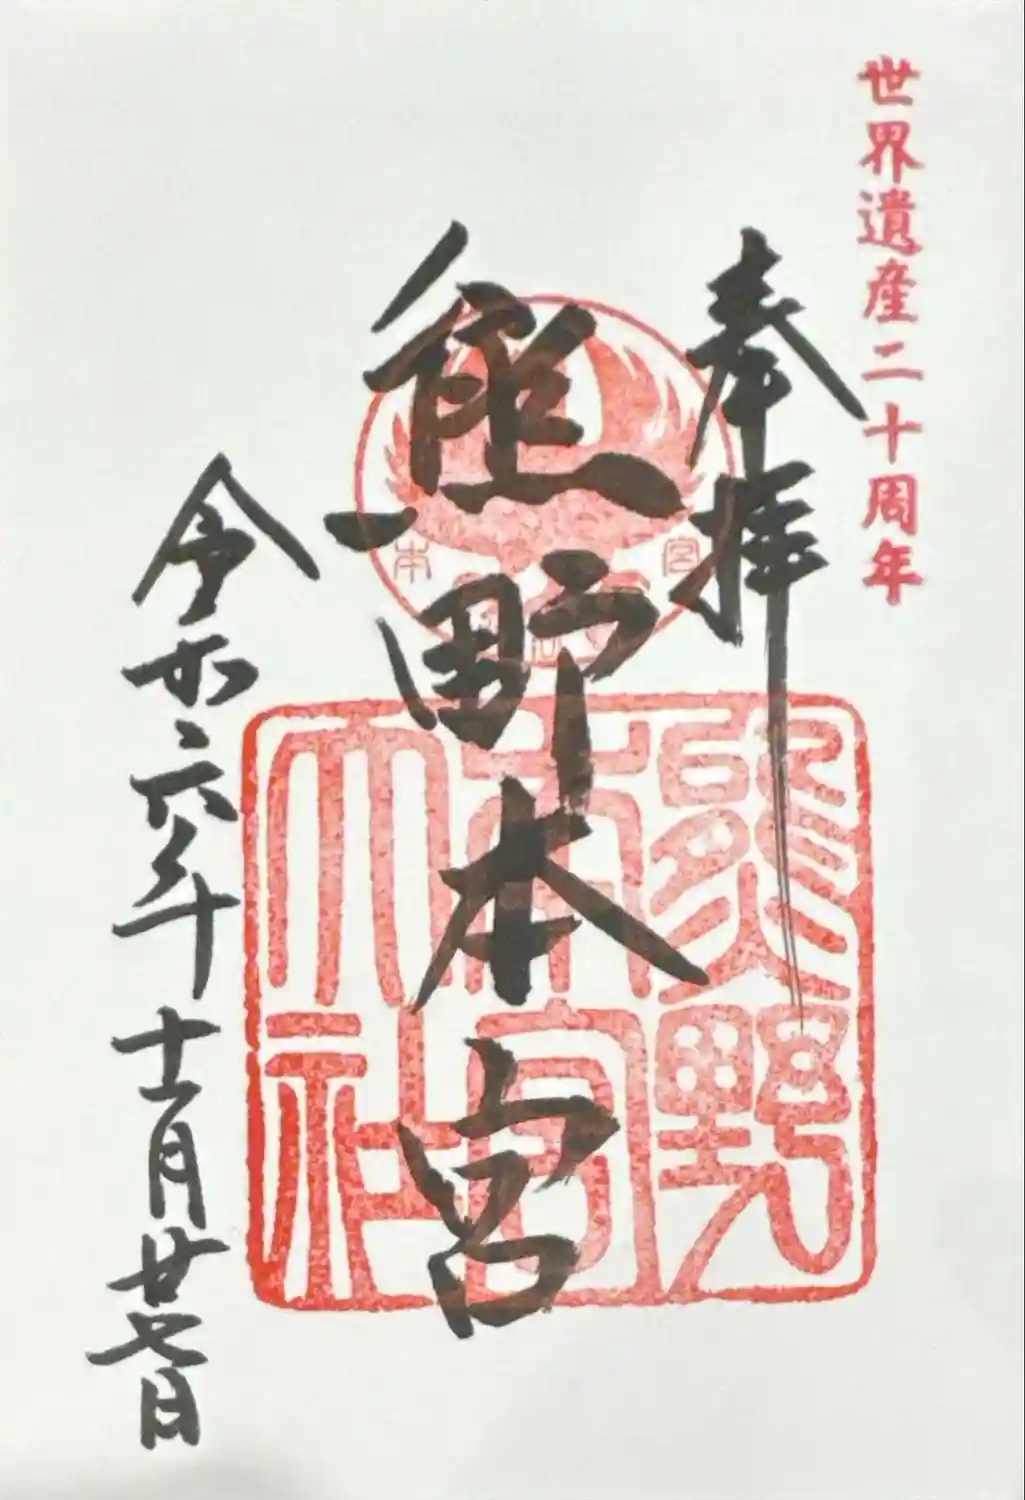 世界遺産二十周年
奉拝
熊野本宮
令和六年十一月廿七日
熊野
本宮
大社
本
宮